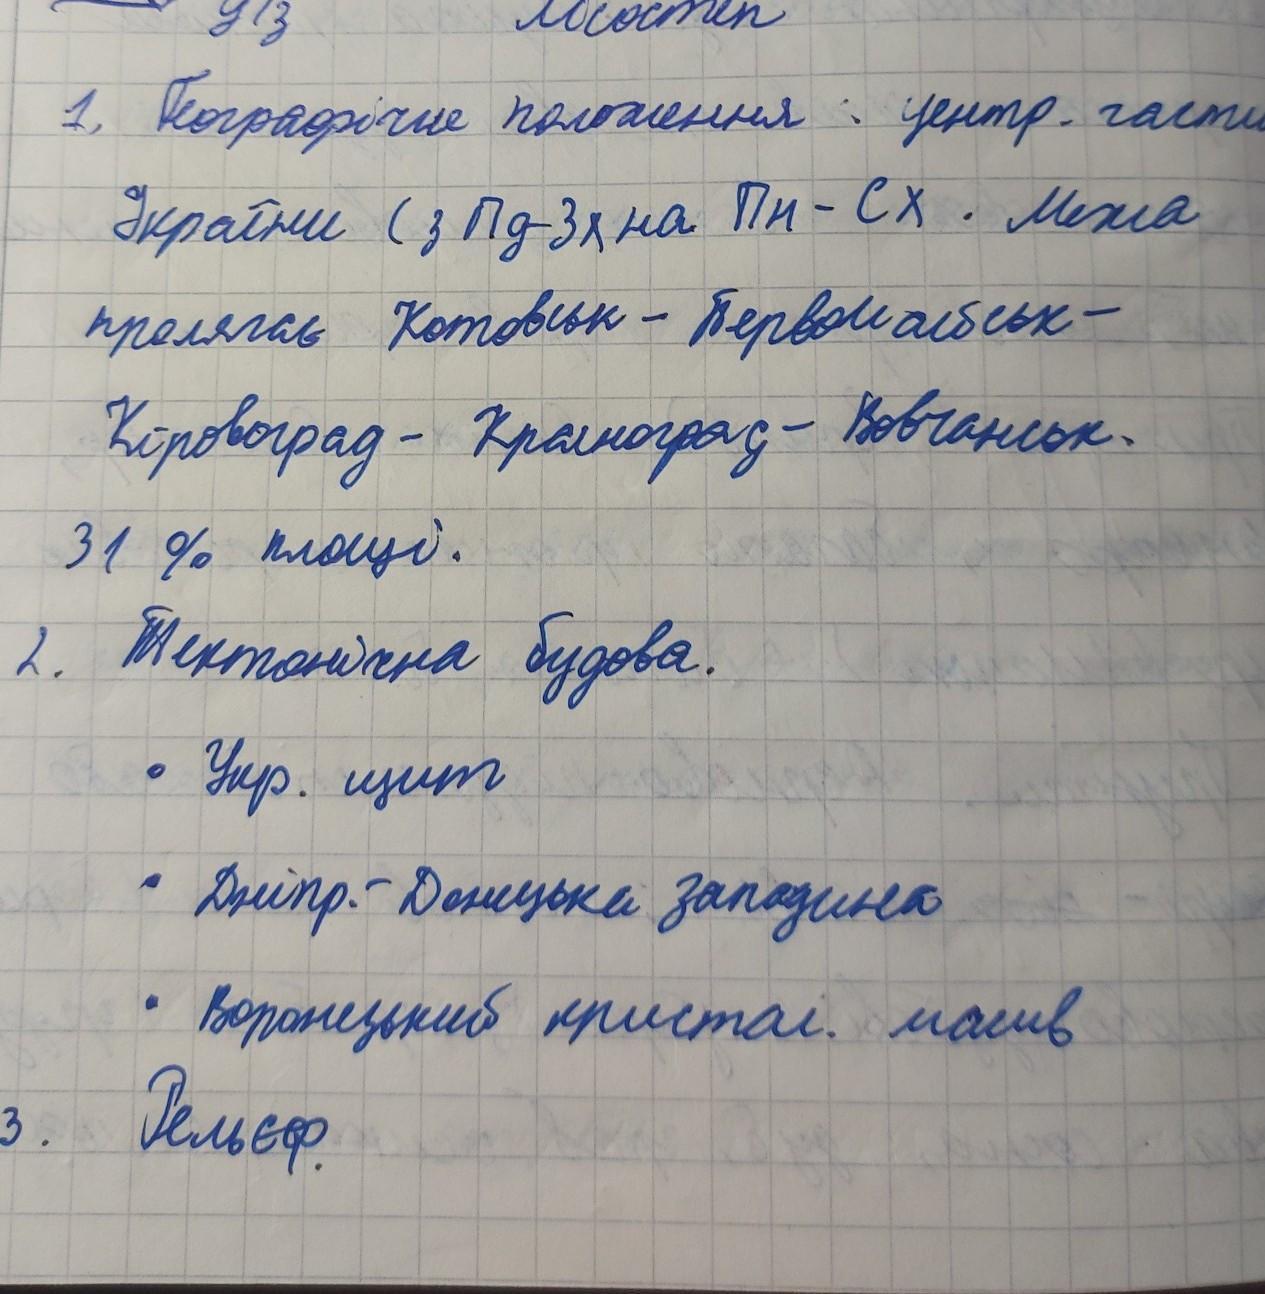 Лісостеп
1. Географічне положення : центр. части
України (з Пд-Зх на Пн - Сх . Межа
пролягає Котовськ - Первомайськ -
Кіровоград - Красноград - Вовчанськ.
31 % площі.
2. Тектонічна будова.
• Укр. щит
• Дніпр.- Донецька западина
• Воронезький кристал. масив
3. Рельєф.